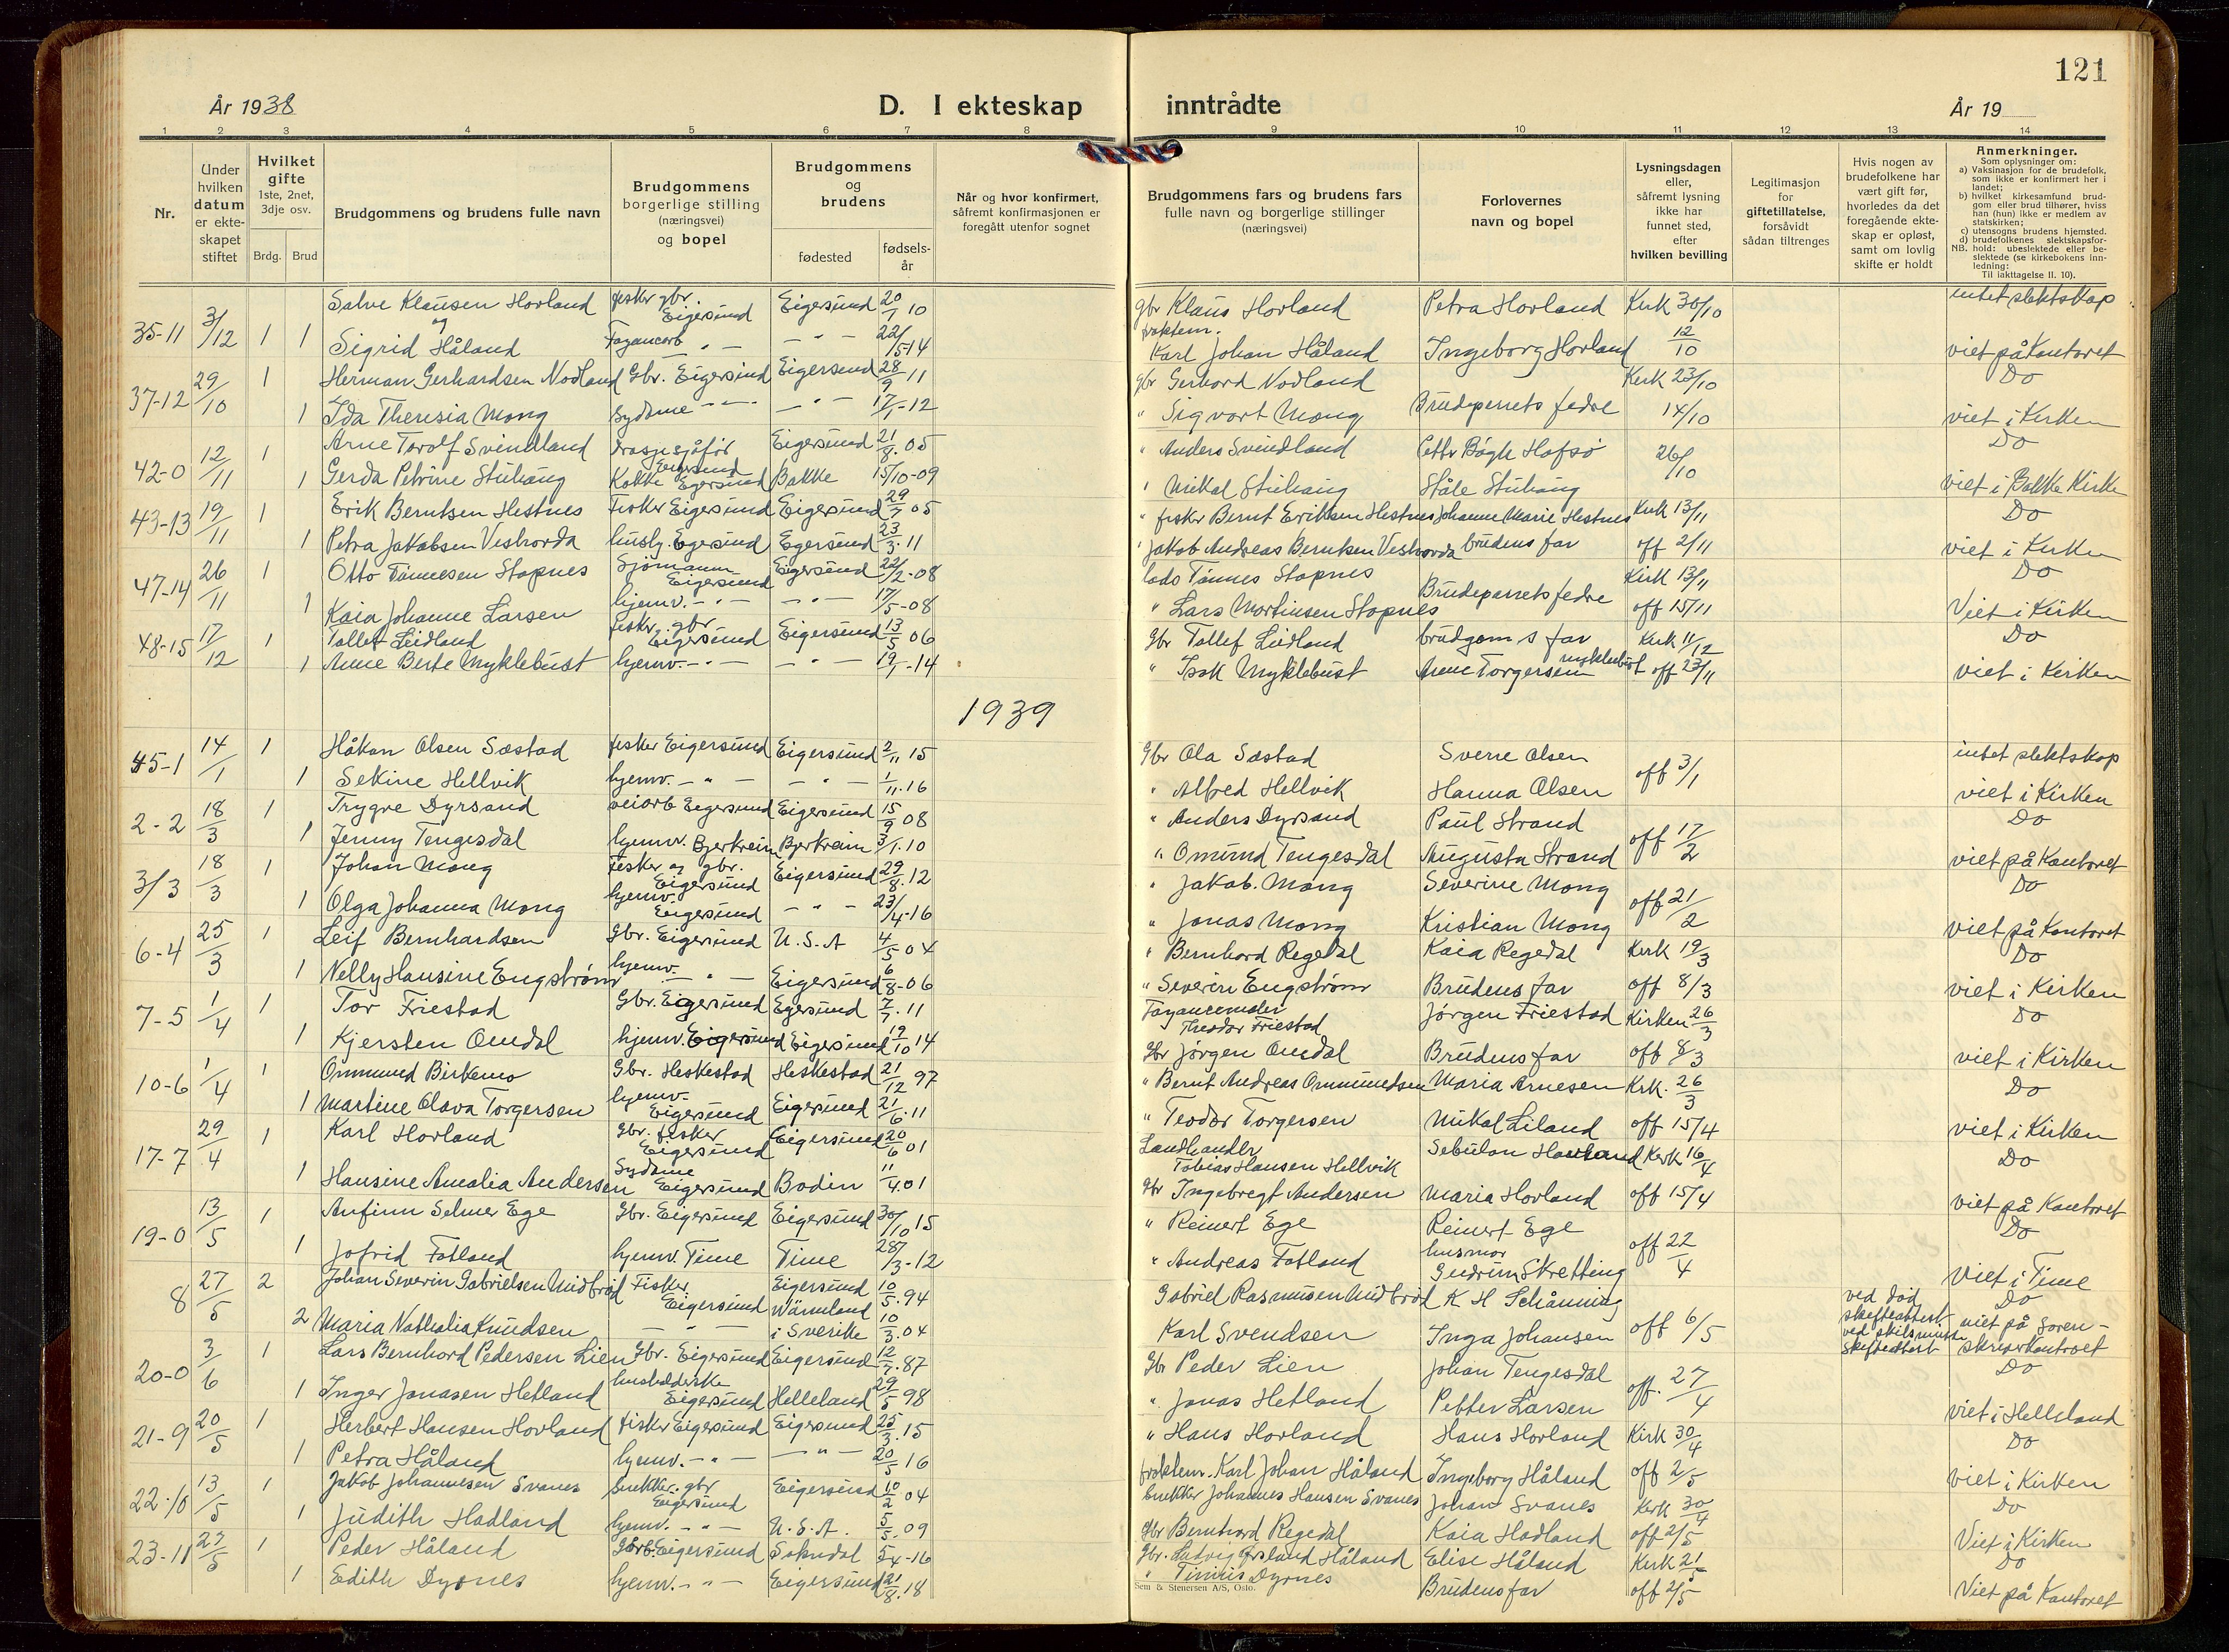 121
År 1938
D. I ekteskap inntrådte
År 19
1 2 3 4 5 6 7 8 9 10 11 12 13 14
Nr.
Under hvilken datum er ekteskapet stiftet
Hvilket gifte 1ste, 2net, 3dje osv.
Brdg. Brud
Brudgommens og brudens fulle navn
Brudgommens borgerlige stilling (næringsvei) og bopel
Brudgommens og brudens
fødested
fødselsår
Når og hvor konfirmert, såfremt konfirmasjonen er foregått utenfor sognet
Brudgommens fars og brudens fars fulle navn og borgerlige stillinger (næringsvei)
Forlovernes navn og bopel
Lysningsdagen eller, såfremt lysning ikke har funnet sted, efter hvilken bevilling
Legitimasjon for giftetillatelse, forsåvidt sådan tiltrenges
Hvis nogen av brudefolkene har vært gift før, hvorledes da det foregående ekteskap er opløst, samt om lovlig skifte er holdt
Anmerkninger.
Som oplysninger om:
a) Vaksinasjon for de brudefolk, som ikke er konfirmert her i landet;
b) hvilket kirkesamfund brudgom eller brud tilhører, hviss han (hun) ikke er medlem av statskirken;
c) utensogns brudens hjemsted.
d) brudefolkenes slektskapsforhold: ubeslektede eller beslektede (se kirkebokens innledning:
NB.
Til iakttagelse II. 10).
35-11 3/12 1 1 Salve Klausen Hovland fisker gbr. Eigersund Eigersund 20/1 10 gbr Klaus Hovland Petra Hovland Kirk 30/10 intet slektskap
og
Sigrid Håland Fayancearb - " - - " - 22/5-14 Karl Johan Håland Ingeborg Hovland 12/10 viet på Kontoret
37-12 29/10 1 Herman Gerhardsen Nodland Gbr. Eigersund Eigersund 28/9 11 gbr Gerhard Nodland Kirk 23/10 Do
1 Ida Theresia Mong Sydame - " - - " - 17/1-12 " Sigvart Mong Brudeparrets fedre 14/10 viet i Kirken
42-0 12/11 1 Arne Torolf Svindland Drosjesjåfør Eigersund Eigersund 05 " Anders Svindland Hofsø 26/10 Do
1 Gerda Petrine Stuhaug Kokke Egersund Bakke 15/10-09 " Mikal Stuhaug Ståle Stuhaug viet i Bakke Kirke
43-13 19/11 1 Erik Berntsen Hestnes Fisker Eigersund Eigersund 29/7 05 " fisker Bernt Eriksen Hestnes Johanne Marie Hestnes Kirk 13/11 Do
1 Petra Jakobsen Vestvorda husly. Egersund Egersund 23/3-11 " Jakob Andreas Berntsen Vestvorda brudens far off 2/11 viet i Kirken
47-14 26/11 1 Otto Tønnesen Stapnes Sjømann Eigersund Eigersund 22/2-08 lods Tønnes Stapnes Brudeparrets fedre Kirk 13/11 Do
1 Kaia Johanne Larsen hjemv. - " - - " - 17/5-08 " Lars Martinsen Stapnes off 15/11 Viet i Kirken
48-15 17/12 1 Tollef Leidland fisker. gbr Eigersund Eigersund 13/5 06 Gbr Tollef Leidland brudgoms far Kirk 11/12 Do
1 Anne Berte Myklebust hjemv. - " - - " - 19/1-14 " Isak Myklebust Anne Torgersen Myklebust off 23/11 viet i Kirken
1939
45-1 14/1 1 Håkon Olsen Sæstad fisker Eigersund Eigersund 2/11 15 Gbr Ola Sæstad Sverre Olsen off 3/1 intet slektskap
1 Sekine Hellvik hjemv. - " - - " - 1/11.16 " Alfred Hellvik Hanna Olsen viet i Kirken
2-2 18/3 1 Trygve Dyrsand veiarb Eigersund Eigersund 15/9 08 " Anders Dyrsand Paul Strand off 17/2 Do
1 Jenny Tengesdal hjemv. Bjerkreim Bjerkreim 3/1.10 " Omund Tengesdal Augusta Strand viet på Kontoret
3/3 18/3 1 Johan Mong fisker og gbr. Eigersund Eigersund 29/8.12 " Jakob. Mong Severine Mong off 21/2 Do
1 Olga Johanna Mong hjemv. Eigersund - " - 23/4-16 " Jonas Mong Kristian Mong viet på Kontoret
6-4 25/3 1 Leif Bernhardsen Gbr. Eigersund U.S.A 4/5 04 " Bernhard Regedal Kaia Regedal Kirk 19/3 Do
1 Nelly Hansine Engstrøm hjemv. - " - Eigersund 6/8-06 " Severin Engstrøm Brudens far off 8/3 viet i Kirken
7-5 1/4 1 Tor Friestad Gbr. Eigersund Egersund 7/7.11 Fayancemaler Theodor Friestad Jørgen Friestad Kirken 26/3 Do
1 Kjersten Omdal hjemv. Eigersund Eigersund 19/10 14 Gbr Jørgen Omdal Brudens far off 8/3 viet i Kirken
10-6 1/4 1 Ommund Birkemo Gbr. Heskestad Heskestad 21/12 97 " Bernt Andreas Ommundsen Maria Arnesen Kirk. 26/3 Do
1 Martine Olava Torgersen hjemv. Eigersund Eigersund 21/6.11 " Teodor Torgersen Mikal Liland off 15/4 viet i Kirken
17-7 29/4 1 Karl Hovland Gbr. fisker Eigersund Eigersund 20/6 01 Landhandler Tobias Hansen Hellvik Sebulon Hovland Kirk 16/4 Do
1 Hansine Amalia Andersen Sydame Eigersund Bodin 11/4.01 Gbr Ingebregt Andersen Maria Hovland off 15/4 viet på Kontoret
19-0 13/5 1 Anfinn Selmer Ege Gbr. Eigersund Eigersund 30/10 15 " Reinert Ege Reinert Ege off 22/4 Do
1 Jofrid Fotland hjemv. Time Time 28/3-12 " Andreas Fotland husmor Gudrun Skretting Viet i Time
8 27/5 2 Johan Severin Gabrielsen Midbrød Fisker Eigersund Eigersund 10/5.94 Gabriel Rasmussen Midbrød K H Schånning off 6/5 ved død skifteattest Do
2 Maria Nathalia Knudsen - " - Wärmland i Sverike 10/3.04 Karl Svendsen Inga Johansen ved skilsmisse skifteattest viet på Sorenskriverkontroet
20-0 3/6 1 Lars Bernhard Pedersen Lien Gbr. Eigersund Eigersund 12/7.87 Gbr Peder Lien Johan Tengesdal off. 27/4 Do
1 Inger Jonasen Hetland husholderske Eigersund Helleland 29/5 98 " Jonas Hetland Petter Larsen viet i Helleland
21-9 20/5 1 Herbert Hansen Hovland fisker Eigersund Eigersund 25/3.15 " Hans Hovland Hans Hovland Kirk 30/4 Do
1 Petra Håland hjemv. - " - - " - 20/5 16 Karl Johan Håland Ingeborg Håland off 2/5 viet i Kirken
22-10 13/5 1 Jakob Johannesen Svanes snekker. gbr Eigersund Eigersund 10/2 04 snekker Johannes Hansen Svanes Johan Svanes Kirk 30/4 Do
1 Judith Hadland hjemv. - " - U.S.A. 5/5.09 Gbr Bernhard Regedal Kaia Hadland off 2/5 Viet i Kirken
23-11 27/5 1 Peder Håland Eigersund Sokndal 5/4-16 Gbr. Ludvig Håland Elise Håland Kirk 21/5 Do
1 Edith Dyrnes hjemv. - " - Eigersund 21/8.18 " Dyrnes Brudens far off 2/5 Viet på Kontoret
Sem & Stenersen A/S, Oslo.